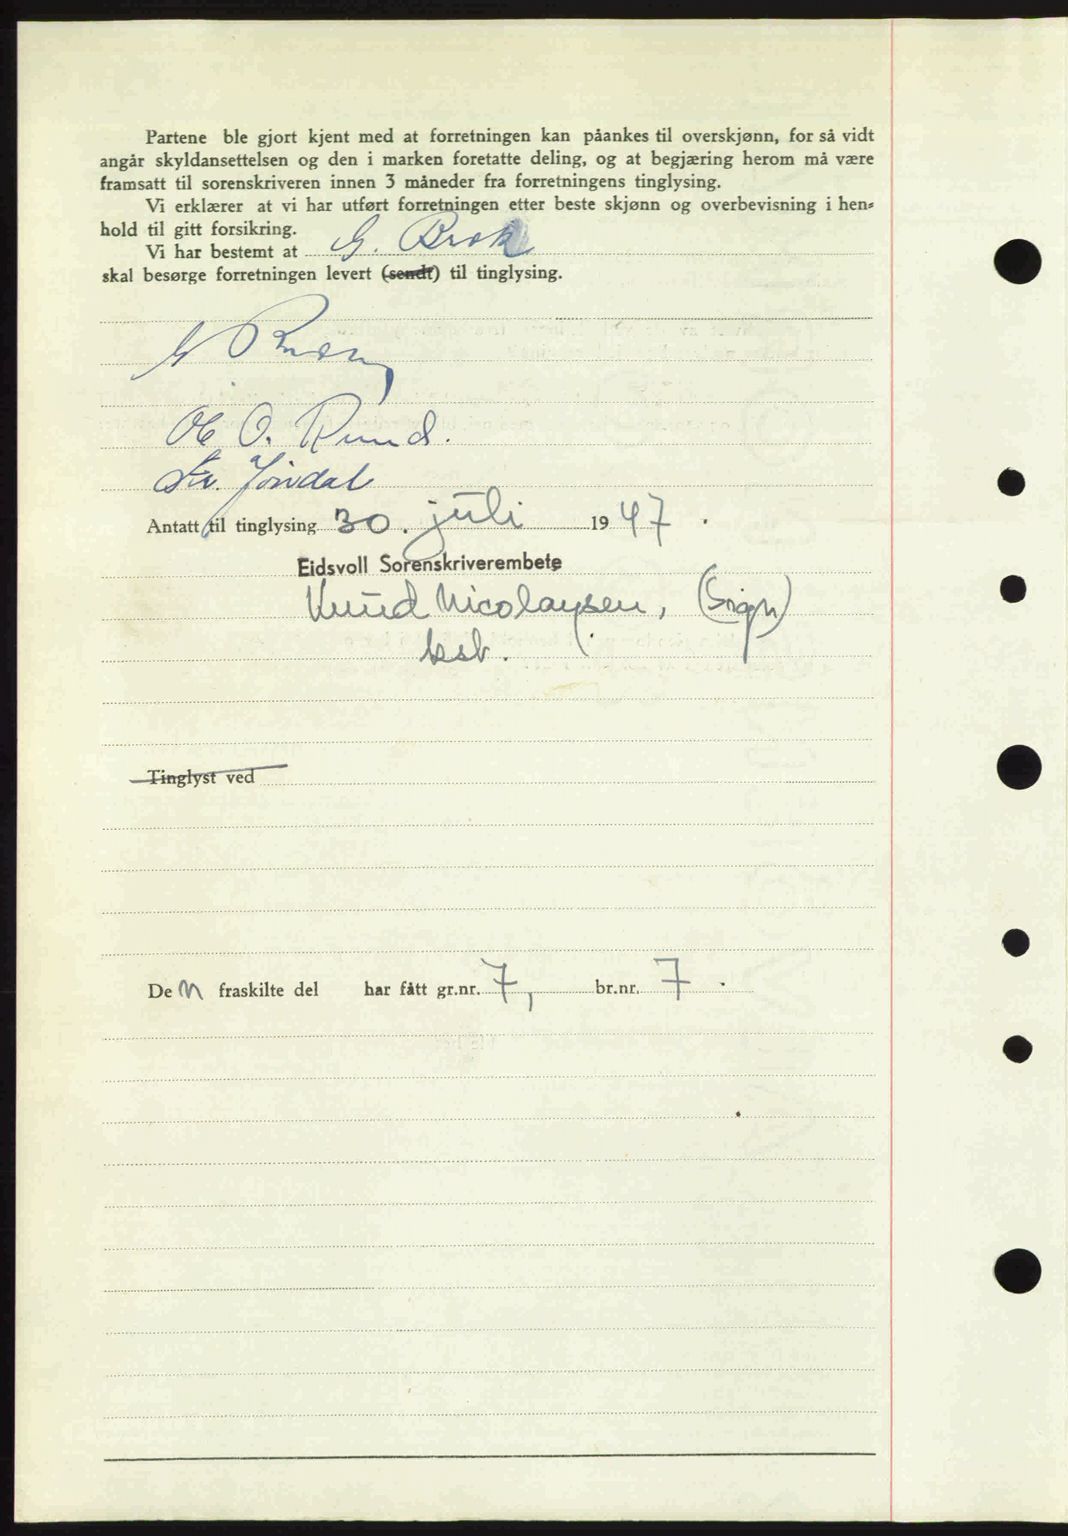 Partene ble gjort kjent med at forretningen kan påankes til overskjønn, for så vidt
angår skyldansettelsen og den i marken foretatte deling, og at begjæring herom må være
framsatt til sorenskriveren innen 3 måneder fra forretningens tinglysing.
Vi erklærer at vi har utført forretningen etter beste skjønn og overbevisning i hen-
hold til gitt forsikring.
Vi har bestemt at G.
skal besørge forretningen levert (sendt) til tinglysing.
Ole O. Ruud.
Jøndal
Antatt til tinglysing 30. juli 1947.
Eidsvoll Sorenskriverembete
Knud Nicolaysen, (Sign)
Tinglyst ved
Den fraskilte del har fått gr.nr. 7, br.nr. 7.